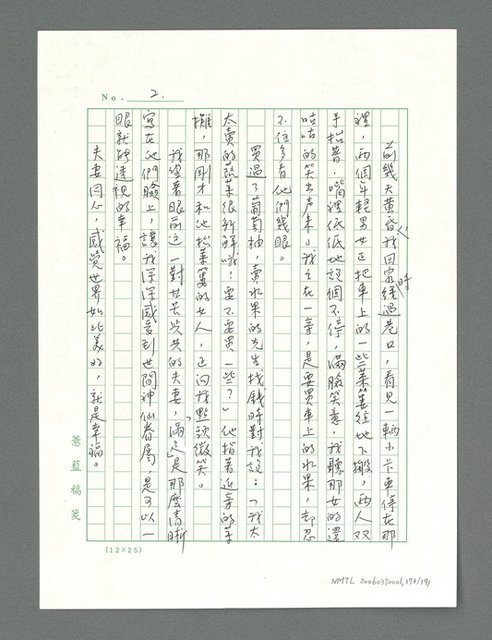 No. 2.
前幾天黃昏我回家經過巷口時,看見一輛小卡車停在那
裡,兩個年輕男女正把車上的一些菜簍往地下搬,兩人双
手抬著,嘴裡低低地說個不停,滿臉笑意,我聽那女的還
咕咕的笑出声來。我立在一旁,是要買車上的水果,却忍
不住多看他們幾眼。
買過了葡萄柚,賣水果的先生找錢時對我說:「我太
太賣的菠菜很新鮮哦!要不要買一些?」他指著近旁的菜
攤,那剛才和他抬菜簍的女人,正向我點頭微笑。
我望着眼前這一對甘苦與共的夫妻,「滿足」是那麼清晰
寫在他們臉上,讓我深深感受到世間神仙眷屬,是可以一
眼就能透視的幸福。
夫妻同心,感覺世界如此美好,就是幸福。
惹藍稿箋
(12×25)
NMTL 20060390001,173/191